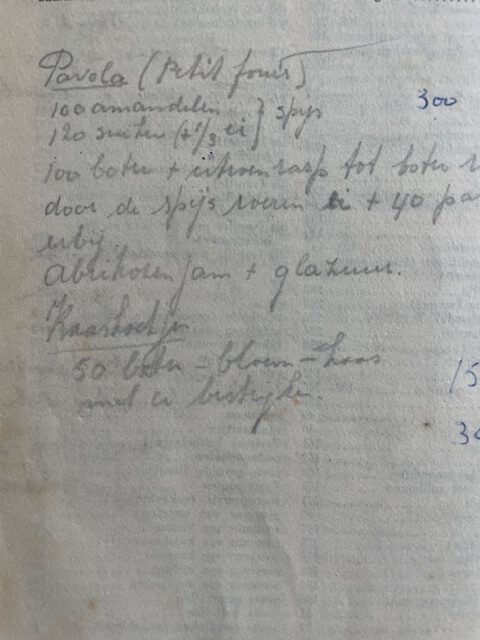 Pavola (Petit fours)
100 amandelen } spijs
120 suiker (+ 1/3 ei)
300
100 boter + citroenrasp tot boter
door de spijs roeren ei + 40
erbij.
Abrikozenjam + glazuur.
Kaaskoekjes
50 boter = bloem = kaas
met ei bestrijken.